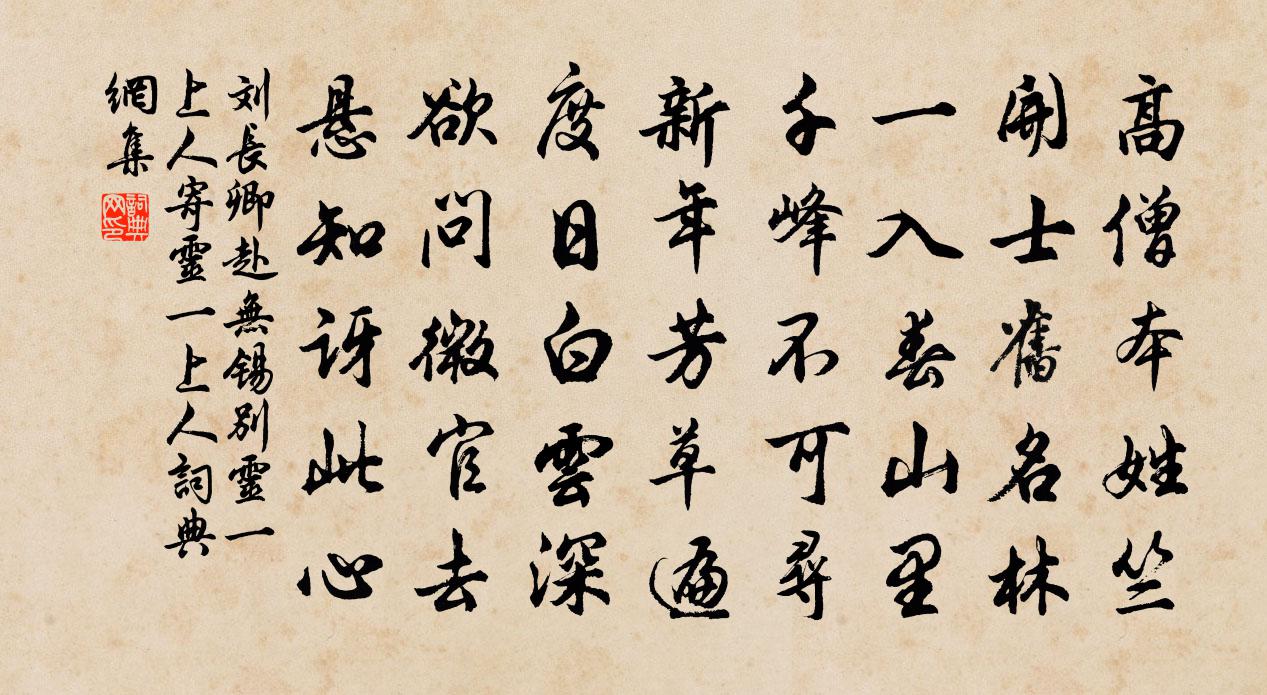 高僧本姓竺
開士舊名林
一入春山里
千峰不可尋
新年芳草遍
度日白雲深
欲問微官去
悬知訝此心
刘長卿赴無锡別靈一
上人寄靈一上人詞典
網集
詞典
网印